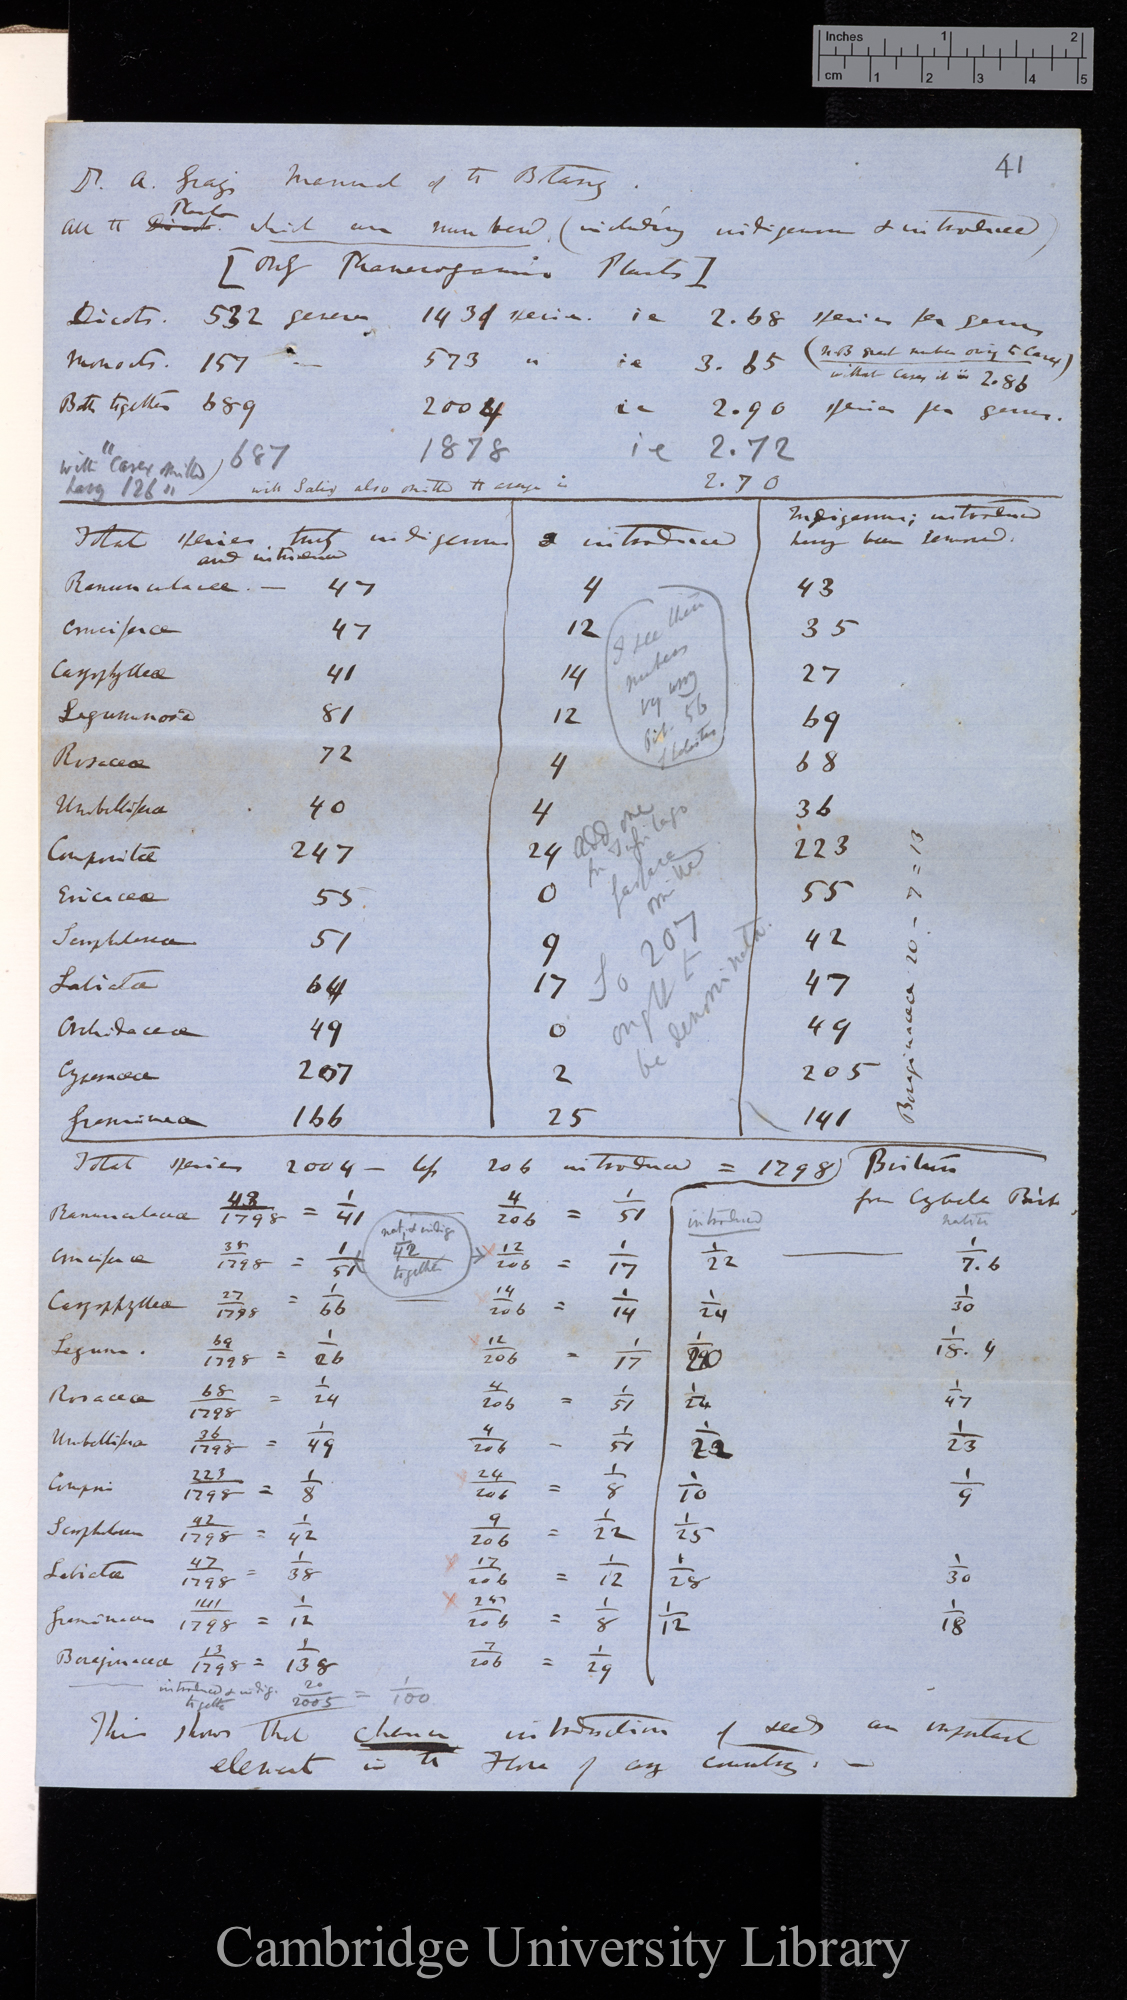 Inches 1 2
cm 1 2 3 4 5
41
Dr. A. Gray's Manual of th Botany.
Plants
All th Dicot. which are numbered, (including indigenous & introduced)
[only Phanerogamic Plants]
Dicots. 532 genera 1431 species. ie 2.68 species per genus
Monocots. 157 — 573 " ie 3.65 (N.B great number owing to Carex)
without Carex it is 2.86
Both together 689 2004 ie 2.90 species per genus.
with "Carex omitted 687 1878 ie 2.72
having 126" with Salix also omitted th average is 2.70
Total species, truly indigenous & introduced Indigenous; introduced
and introduced having been removed.
Ranunculaceæ. — 47 4 43
Cruciferæ 47 12 35
Caryophylleæ 41 14 27
Leguminosæ 81 12 69
Rosaceæ 72 4 68
Umbelliferæ 40 4 36
Compositæ 247 24 223
Ericaceæ 55 0 55
Scrophulareæ 51 9 42
Labiatæ 64 17 47
Orchidaceæ 49 0 49
Cyperaceæ 207 2 205
Gramineæ 166 25 141
I see these
numbers
by
56
add one
for Tussilago
farfara
omitted
So 207
ought to
be denominator.
Boraginaceæ 20 - 7 = 13
Total species 2004 — less 206 introduced = 1798) Britain
from Cybele Brit.
introduced natives
Ranunculaceæ 43/1798 = 1/41 4/206 = 1/51
nat. & indig
42
together
Cruciferæ 35/1798 = 1/51 x 12/206 = 1/17 1/22 — 1/7.6
Caryophylleæ 27/1798 = 1/66 — x 14/206 = 1/14 1/24 1/30
Legum. 69/1798 = 1/26 x 12/206 = 1/17 1/20 1/18.4
Rosaceæ 68/1798 = 1/24 4/206 = 1/51 1/24 1/47
Umbelliferæ 36/1798 = 1/49 4/206 — 1/51 1/22 1/23
Compos 223/1798 = 1/8 x 24/206 = 1/8 1/10 1/9
Scrophulareæ 42/1798 = 1/42 9/206 = 1/22 1/25
Labiatæ 47/1798 = 1/38 x 17/206 = 1/12 1/28 1/30
Gramineæ 141/1798 = 1/12 x 25/206 = 1/8 1/12 1/18
Boraginaceæ 13/1798 = 1/138 7/206 = 1/29
introduced & indig. 20/2005 = 1/100
together
This shows that chance introduction of seeds an important
element in th Flora of any country. —
Cambridge University Library